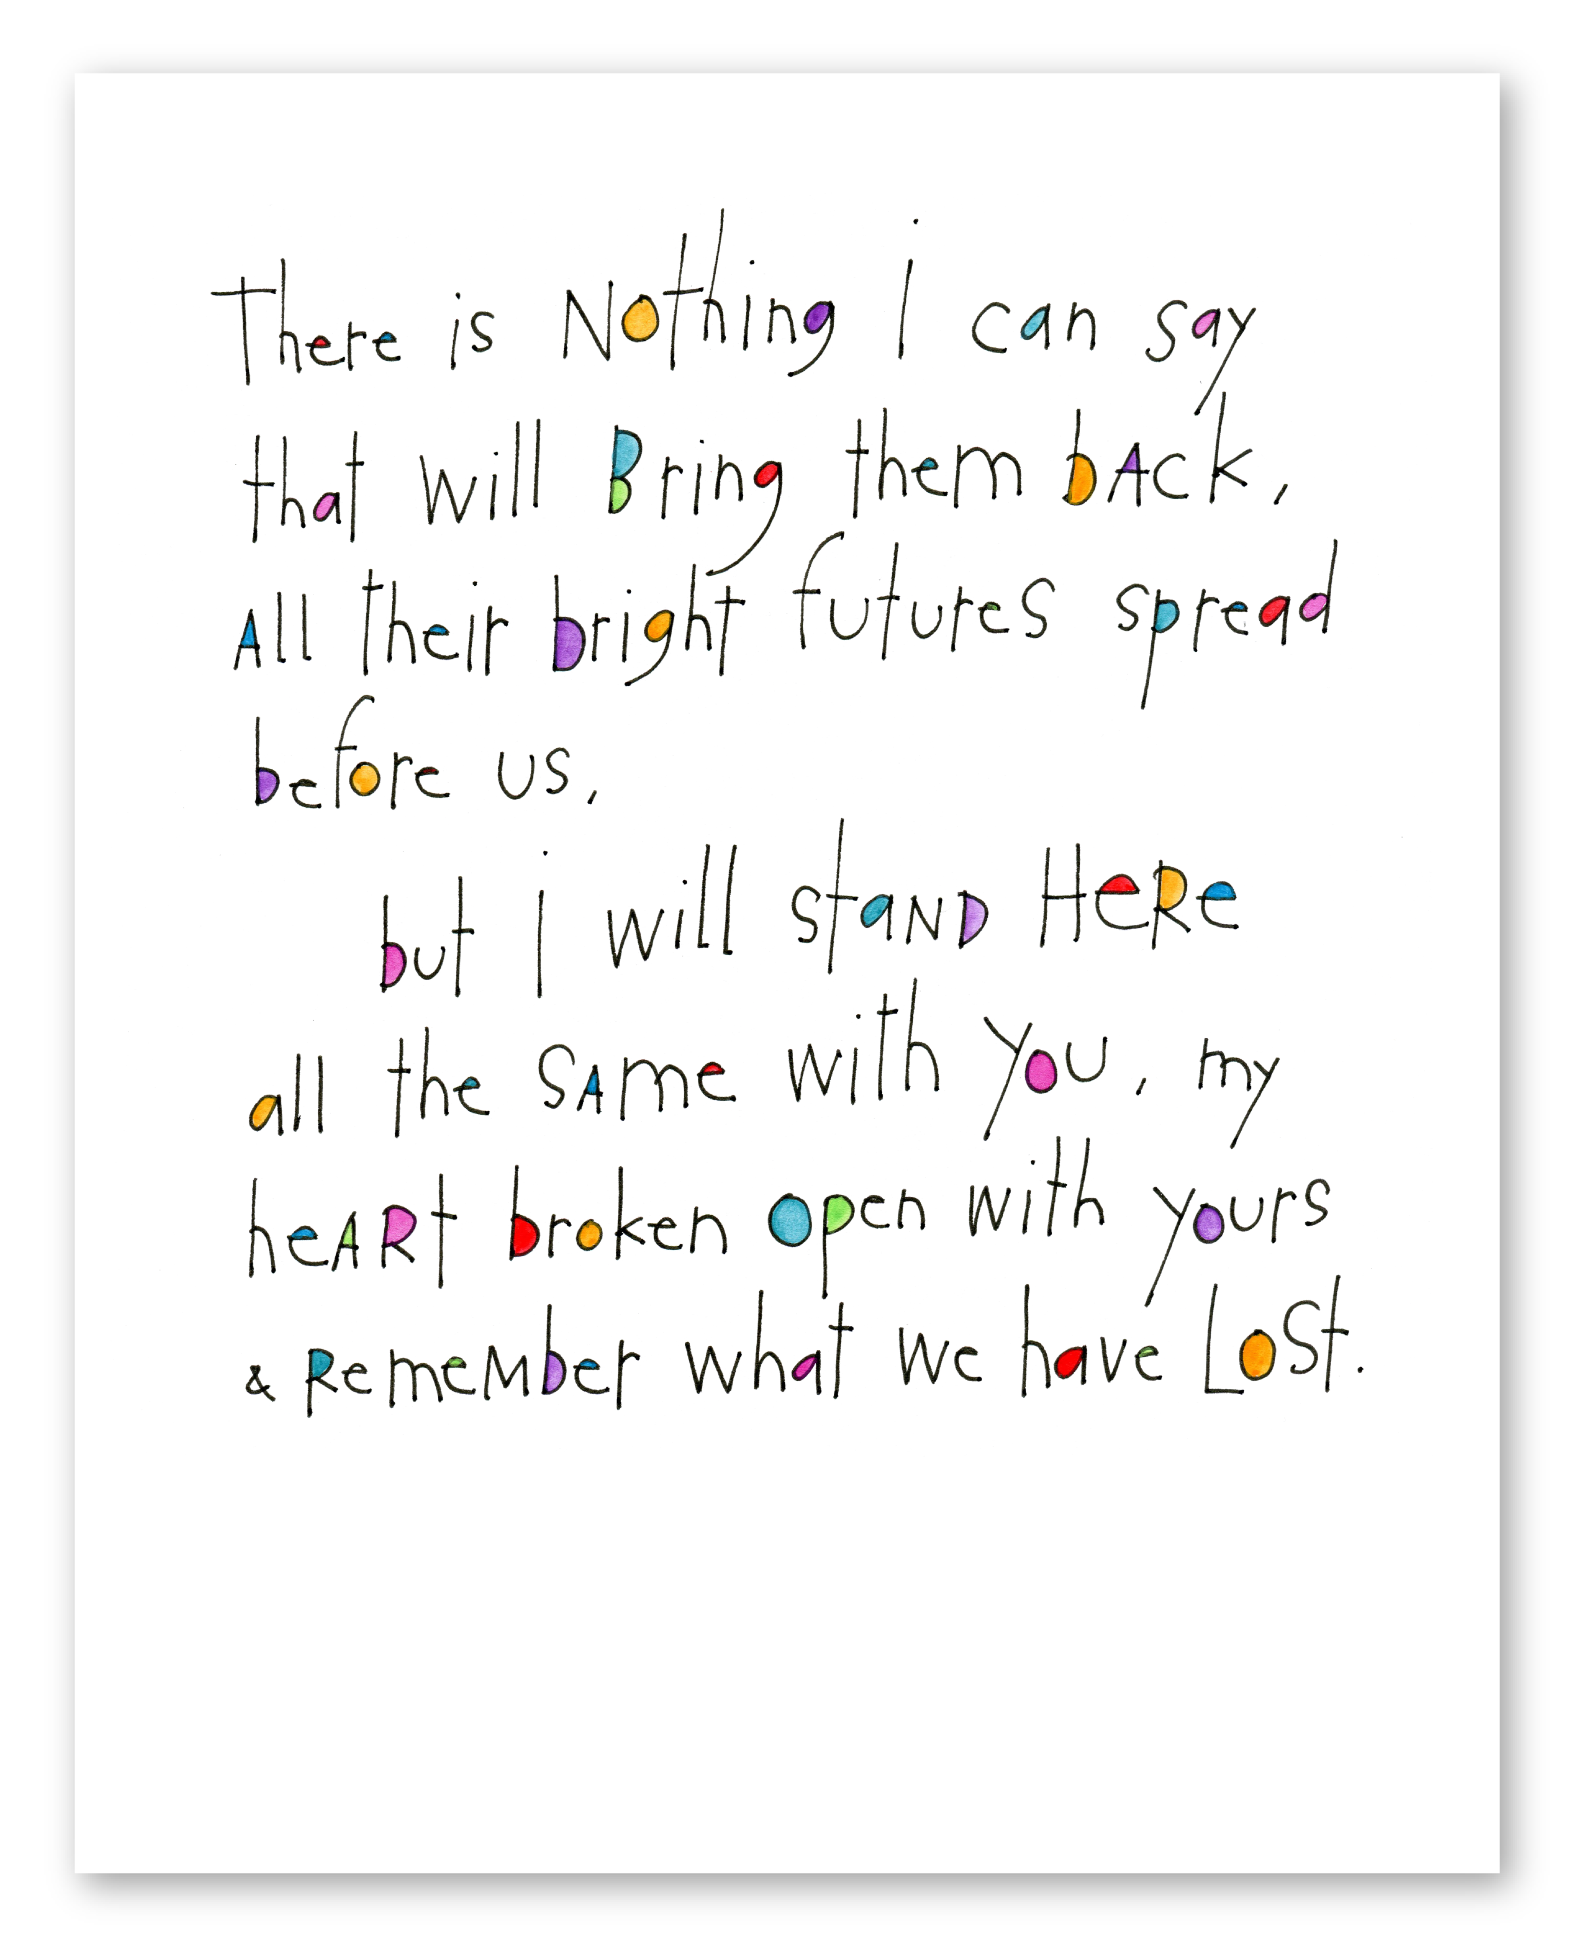 There is Nothing i can say
that will Bring them bAck,
All their bright futures spread
before us,
but i will staND HeRe
all the SAme with you, my
heARt broken open with yours
& RemeMber what we have LoSt.